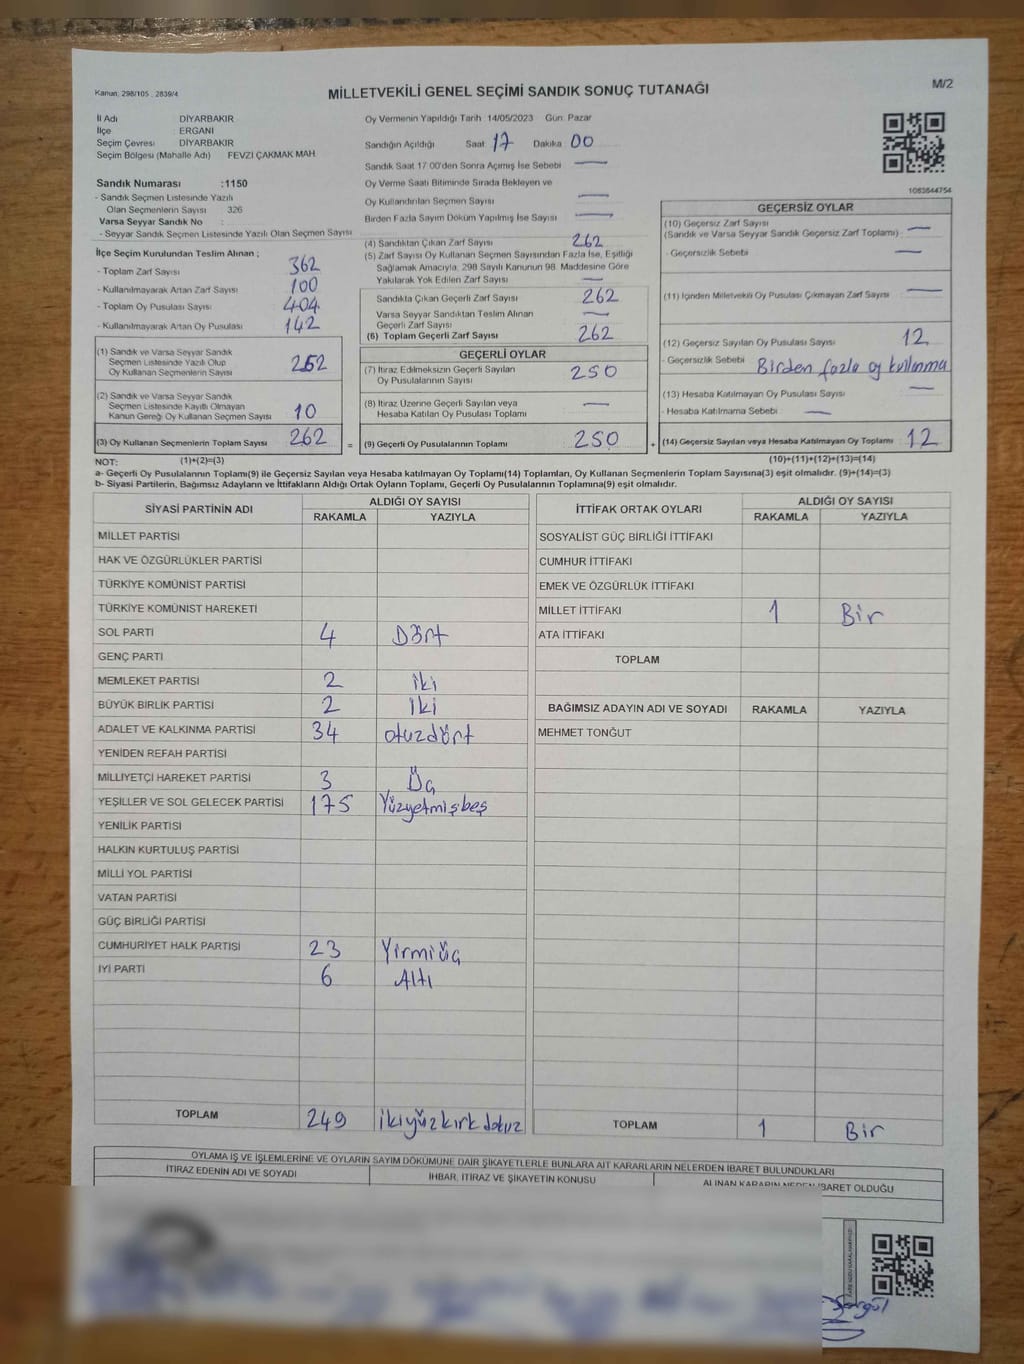 Kanun: 298/105 , 2839/4
MİLLETVEKİLİ GENEL SEÇİMİ SANDIK SONUÇ TUTANAĞI
M/2
İl Adı DİYARBAKIR
İlçe : ERGANİ
Seçim Çevresi DİYARBAKIR
Seçim Bölgesi (Mahalle Adı) FEVZİ ÇAKMAK MAH.
Sandık Numarası :1150
- Sandık Seçmen Listesinde Yazılı
Olan Seçmenlerin Sayısı 326
Varsa Seyyar Sandık No :
- Seyyar Sandık Seçmen Listesinde Yazılı Olan Seçmen Sayısı
İlçe Seçim Kurulundan Teslim Alınan ;
- Toplam Zarf Sayısı 362
- Kullanılmayarak Artan Zarf Sayısı 100
- Toplam Oy Pusulası Sayısı 404
- Kullanılmayarak Artan Oy Pusulası 142
(1) Sandık ve Varsa Seyyar Sandık
Seçmen Listesinde Yazılı Olup
Oy Kullanan Seçmenlerin Sayısı 252
(2) Sandık ve Varsa Seyyar Sandık
Seçmen Listesinde Kayıtlı Olmayan
Kanun Gereği Oy Kullanan Seçmen Sayısı 10
(3) Oy Kullanan Seçmenlerin Toplam Sayısı 262 =
Oy Vermenin Yapıldığı Tarih 14/05/2023 Gün: Pazar
Sandığın Açıldığı Saat: 17 Dakika 00
Sandık Saat 17:00'den Sonra Açımış İse Sebebi —
Oy Verme Saati Bitiminde Sırada Bekleyen ve
Oy Kullandırılan Seçmen Sayısı —
Birden Fazla Sayım Döküm Yapılmış İse Sayısı —
(4) Sandıktan Çıkan Zarf Sayısı 262
(5) Zarf Sayısı Oy Kullanan Seçmen Sayısından Fazla İse, Eşitliği
Sağlamak Amacıyla, 298 Sayılı Kanunun 98. Maddesine Göre
Yakılarak Yok Edilen Zarf Sayısı —
Sandıkta Çıkan Geçerli Zarf Sayısı 262
Varsa Seyyar Sandıktan Teslim Alınan
Geçerli Zarf Sayısı —
(6) Toplam Geçerli Zarf Sayısı 262
GEÇERLİ OYLAR
(7) İtiraz Edilmeksizin Geçerli Sayılan
Oy Pusulalarının Sayısı 250
(8) İtiraz Üzerine Geçerli Sayılan veya
Hesaba Katılan Oy Pusulası Toplamı —
(9) Geçerli Oy Pusulalarının Toplamı 250 +
1083844754
GEÇERSİZ OYLAR
(10) Geçersiz Zarf Sayısı
(Sandık ve Varsa Seyyar Sandık Geçersiz Zarf Toplamı) —
- Geçersizlik Sebebi —
(11) İçinden Milletvekili Oy Pusulası Çıkmayan Zarf Sayısı —
(12) Geçersiz Sayılan Oy Pusulası Sayısı 12
- Geçersizlik Sebebi Birden fazla oy kullanma
(13) Hesaba Katılmayan Oy Pusulası Sayısı —
- Hesaba Katılmama Sebebi —
(14) Geçersiz Sayılan veya Hesaba Katılmayan Oy Toplamı 12
NOT: (1)+(2)=(3) (10)+(11)+(12)+(13)=(14)
a- Geçerli Oy Pusulalarının Toplamı(9) ile Geçersiz Sayılan veya Hesaba katılmayan Oy Toplamı(14) Toplamları, Oy Kullanan Seçmenlerin Toplam Sayısına(3) eşit olmalıdır. (9)+(14)=(3)
b- Siyasi Partilerin, Bağımsız Adayların ve İttifakların Aldığı Ortak Oyların Toplamı, Geçerli Oy Pusulalarının Toplamına(9) eşit olmalıdır.
SİYASİ PARTİNİN ADI ALDIĞI OY SAYISI
RAKAMLA YAZIYLA
MİLLET PARTİSİ
HAK VE ÖZGÜRLÜKLER PARTİSİ
TÜRKİYE KOMÜNİST PARTİSİ
TÜRKİYE KOMÜNİST HAREKETİ
SOL PARTİ 4 Dört
GENÇ PARTİ
MEMLEKET PARTİSİ 2 iki
BÜYÜK BİRLİK PARTİSİ 2 iki
ADALET VE KALKINMA PARTİSİ 34 otuzdört
YENİDEN REFAH PARTİSİ
MİLLİYETÇİ HAREKET PARTİSİ 3 Üç
YEŞİLLER VE SOL GELECEK PARTİSİ 175 Yüzyetmişbeş
YENİLİK PARTİSİ
HALKIN KURTULUŞ PARTİSİ
MİLLİ YOL PARTİSİ
VATAN PARTİSİ
GÜÇ BİRLİĞİ PARTİSİ
CUMHURİYET HALK PARTİSİ 23 Yirmiüç
İYİ PARTİ 6 Altı
TOPLAM 249 ikiyüzkırkdokuz
İTTİFAK ORTAK OYLARI ALDIĞI OY SAYISI
RAKAMLA YAZIYLA
SOSYALİST GÜÇ BİRLİĞİ İTTİFAKI
CUMHUR İTTİFAKI
EMEK VE ÖZGÜRLÜK İTTİFAKI
MİLLET İTTİFAKI 1 Bir
ATA İTTİFAKI
TOPLAM
BAĞIMSIZ ADAYIN ADI VE SOYADI RAKAMLA YAZIYLA
MEHMET TONĞUT
TOPLAM 1 Bir
OYLAMA İŞ VE İŞLEMLERİNE VE OYLARIN SAYIM DÖKÜMÜNE DAİR ŞİKAYETLERLE BUNLARA AİT KARARLARIN NELERDEN İBARET BULUNDUKLARI
İTİRAZ EDENİN ADI VE SOYADI İHBAR, İTİRAZ VE ŞİKAYETİN KONUSU ALINAN KARARIN NEDEN İBARET OLDUĞU